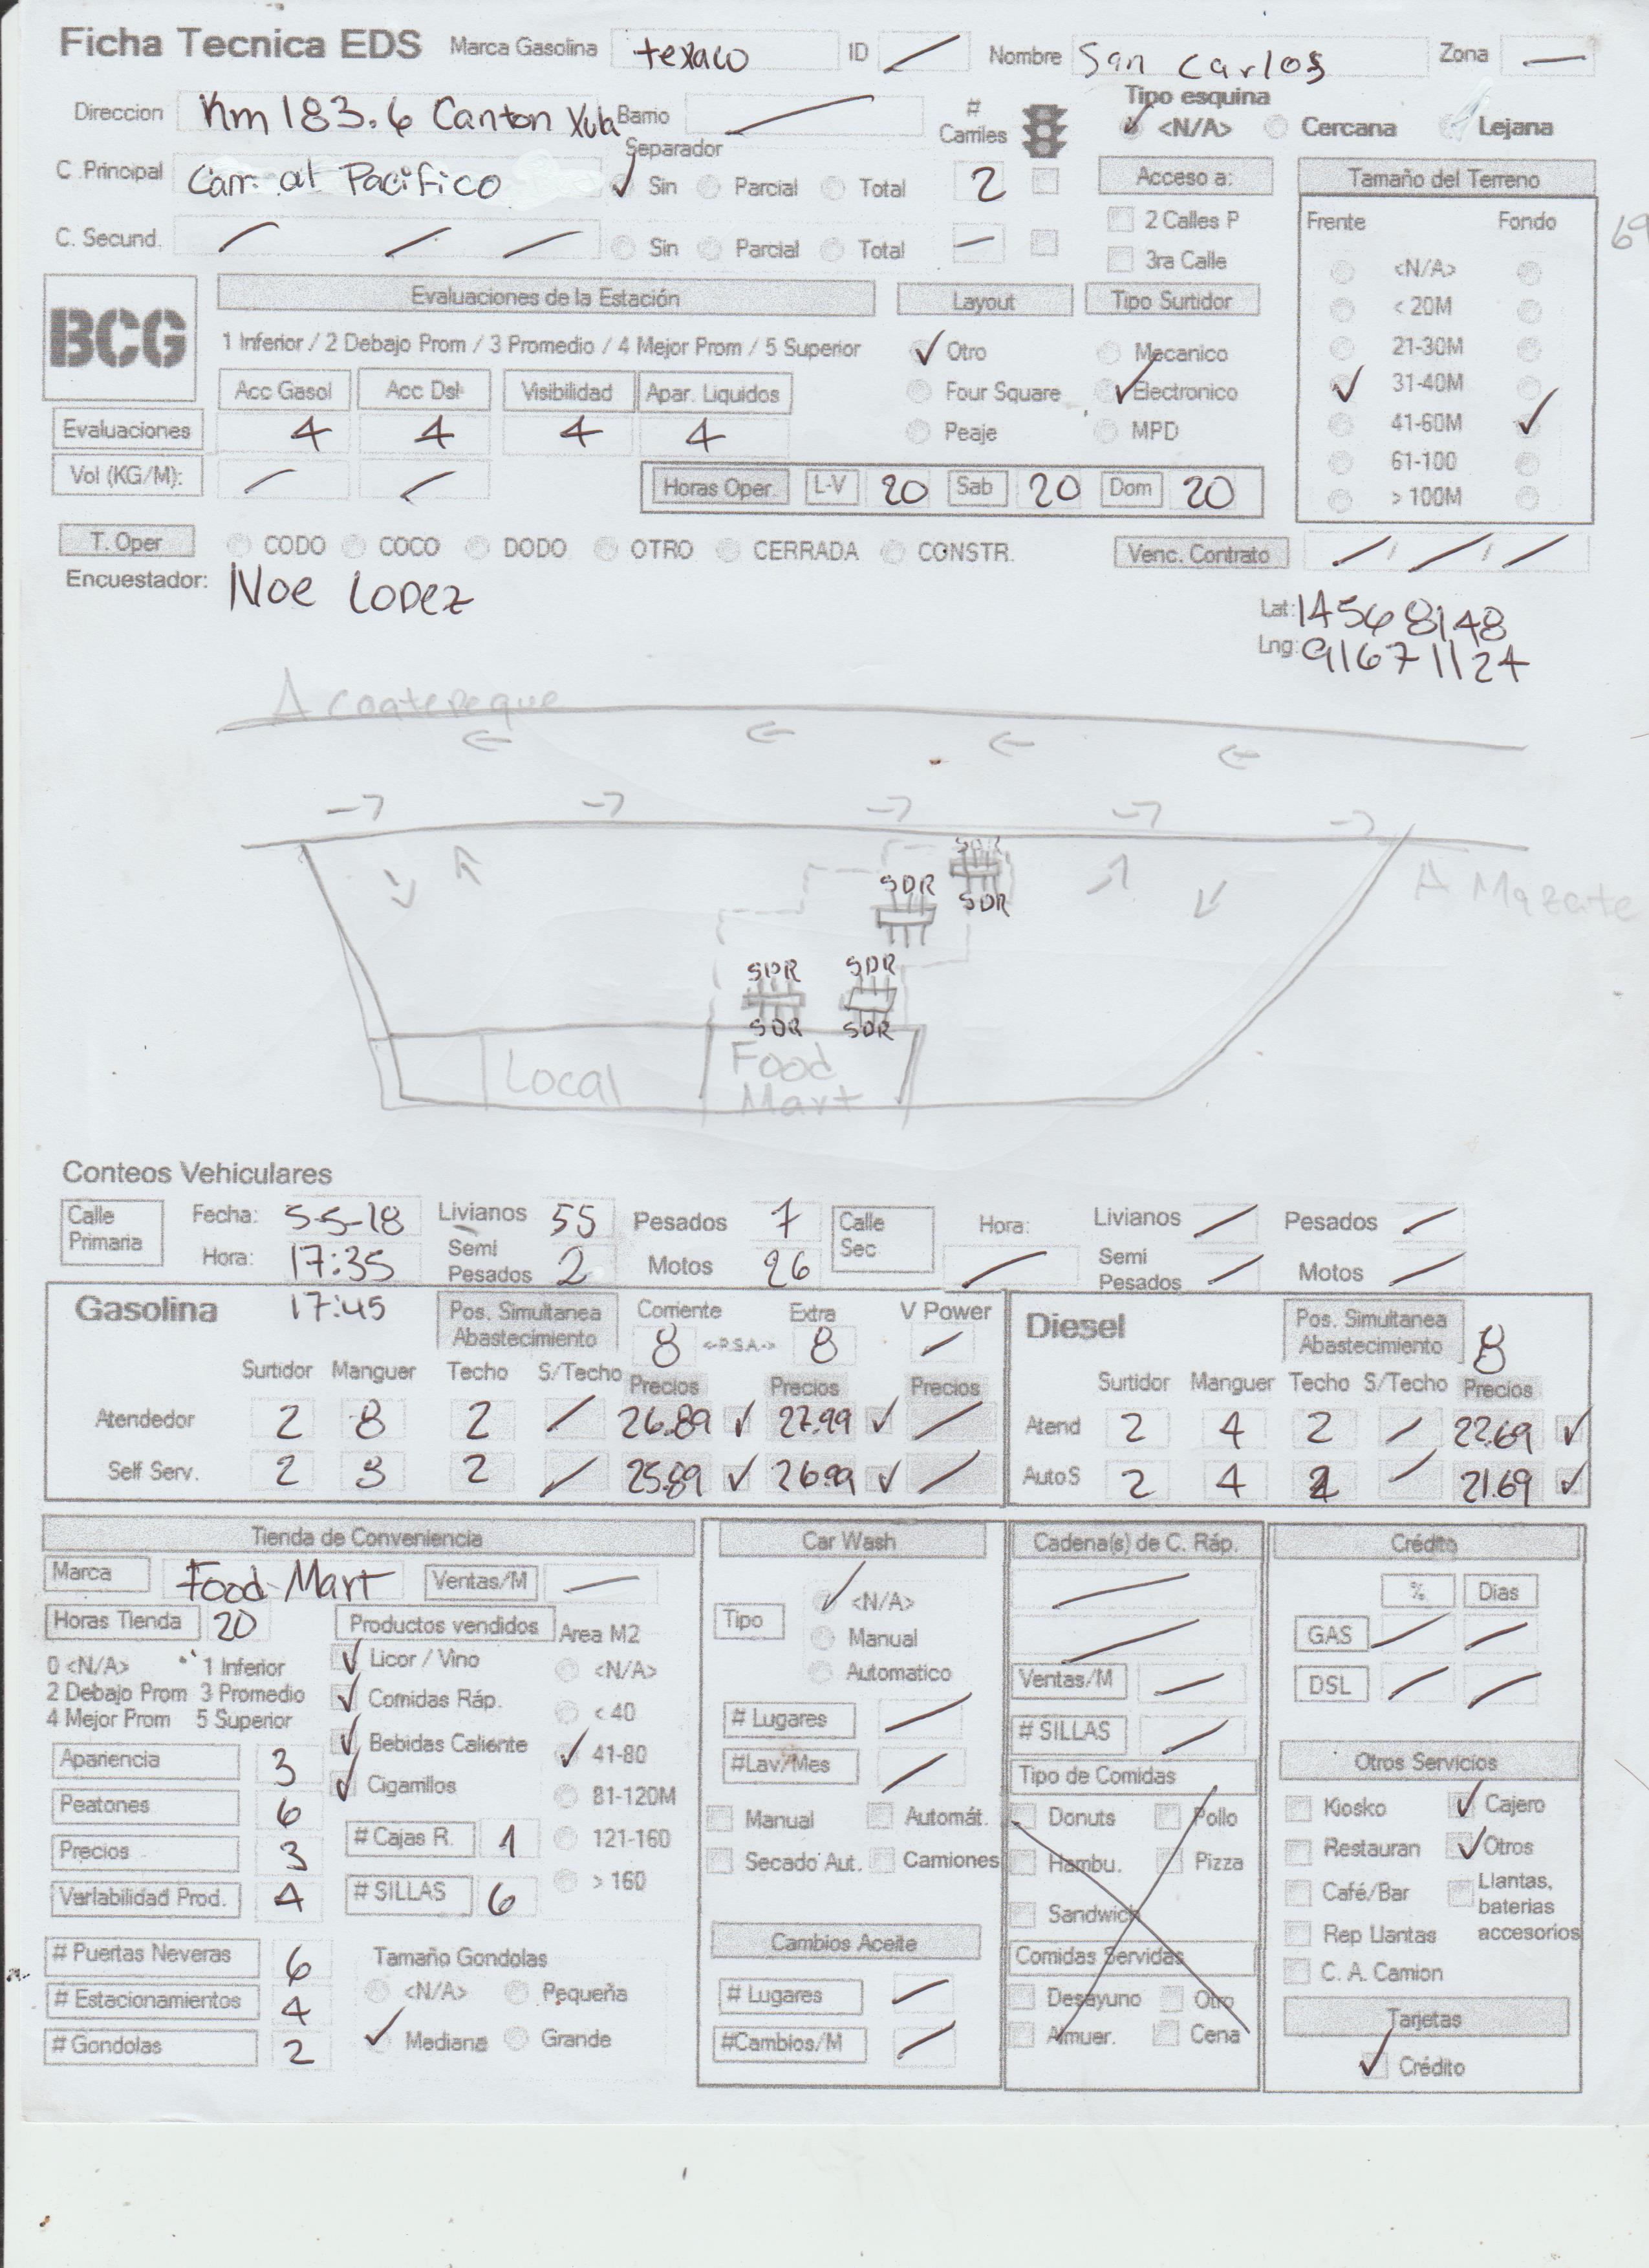 Ficha Tecnica EDS Marca Gasolina texaco ID Nombre San Carlos Zona —
Direccion Km 183.6 Canton Xula Barrio # Carriles Tipo esquina <N/A> Cercana Lejana
Separador
C .Principal Carr. al Pacifico Sin Parcial Total 2 Acceso a: Tamaño del Terreno
2 Calles P Frente Fondo 69
C. Secund. Sin Parcial Total — 3ra Calle
<N/A>
BCG Evaluaciones de la Estación Layout Tipo Surtidor < 20M
1 Inferior / 2 Debajo Prom / 3 Promedio / 4 Mejor Prom / 5 Superior Otro Mecanico 21-30M
Acc Gasol Acc Dsl Visibilidad Apar. Liquidos Four Square Electronico 31-40M
Evaluaciones 4 4 4 4 Peaje MPD 41-60M
61-100
Vol (KG/M): Horas Oper. L-V 20 Sab 20 Dom 20 > 100M
T. Oper CODO COCO DODO OTRO CERRADA CONSTR. Venc. Contrato / /
Encuestador: Noe Lopez
Lat: 14568148
Lng: 91671124
A Coatepeque
SDR
SDR SDR
A Mazate
SDR SDR
SDR SDR
Local Food Mart
Conteos Vehiculares
Calle Primaria Fecha: 5-5-18 Livianos 55 Pesados 7 Calle Sec Hora: Livianos Pesados
Hora: 17:35 Semi Pesados 2 Motos 26 Semi Pesados Motos
Gasolina 17:45 Pos. Simultanea Abastecimiento Corriente 8 <-P.S.A-> Extra 8 V Power Diesel Pos. Simultanea Abastecimiento 8
Surtidor Manguer Techo S/Techo Precios Precios Precios Surtidor Manguer Techo S/Techo Precios
Atendedor 2 8 2 26.89 27.99 Atend 2 4 2 22.69
Self Serv. 2 8 2 25.89 26.99 AutoS 2 4 2 21.69
Tienda de Conveniencia Car Wash Cadena(s) de C. Ráp. Crédito
Marca Food Mart Ventas/M — % Dias
Horas Tienda 20 Productos vendidos Area M2 Tipo <N/A> GAS
0 <N/A> 1 Inferior Licor / Vino <N/A> Manual
2 Debajo Prom 3 Promedio Comidas Ráp. < 40 Automatico Ventas/M DSL
4 Mejor Prom 5 Superior # Lugares # SILLAS
Apariencia 3 Bebidas Caliente 41-80 #Lav/Mes Tipo de Comidas Otros Servicios
Cigarrillos 81-120M
Peatones 6 Manual Automát. Donuts Pollo Kiosko Cajero
Precios 3 # Cajas R. 1 121-160 Secado Aut. Camiones Hambu. Pizza Restauran Otros
Variabilidad Prod. 4 # SILLAS 6 > 160 Sandwich Café/Bar Llantas, baterias accesorios
# Puertas Neveras 6 Tamaño Gondolas Cambios Aceite Comidas Servidas Rep Llantas
# Estacionamientos 4 <N/A> Pequeña # Lugares Desayuno Otro C. A. Camion
# Gondolas 2 Mediana Grande #Cambios/M Almuer. Cena Tarjetas
Crédito